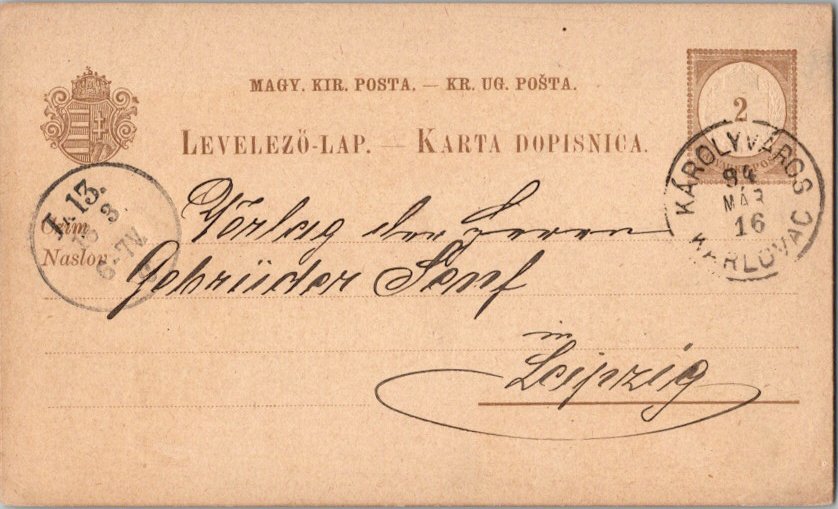 MAGY. KIR. POSTA. — KR. UG. POŠTA.
LEVELEZŐ-LAP. — KARTA DOPISNICA.
2
KÁROLYVÁROS
94
MÁR
16
KARLOVAC
L. 13.
8
6-7N.
Czim
Naslov
Verlag der Herren
Gebrüder Senf
in
Leipzig